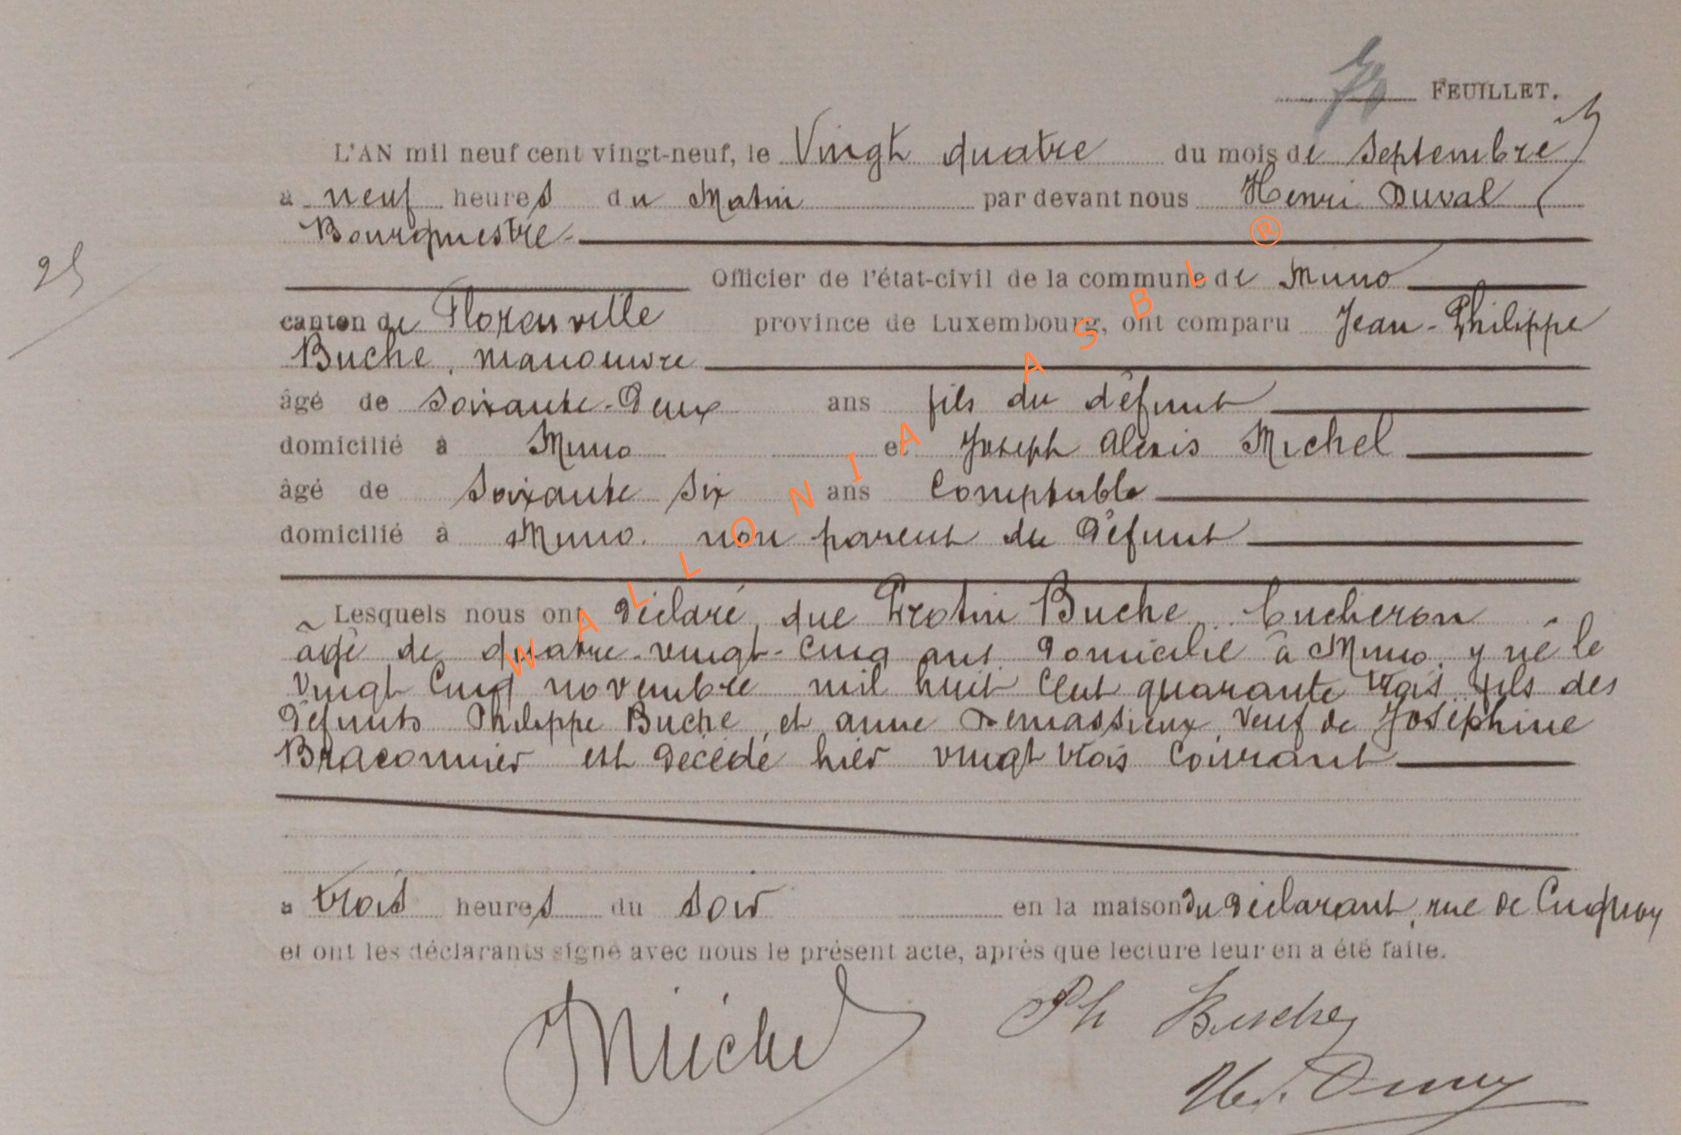 70 FEUILLET.
L'AN mil neuf cent vingt-neuf, le Vingt quatre du mois de Septembre
à neuf heures du Matin par devant nous Henri Duval
Bourgmestre
25
Officier de l'état-civil de la commune de Muno
canton de Florenville province de Luxembourg, ont comparu Jean-Philippe
Buche, manouvre
âgé de soixante-Deux ans fils du défunt
domicilié à Muno et Joseph Alexis Michel
âgé de soixante six ans Comptable
domicilié à Muno. non parent du Défunt
Lesquels nous ont Déclaré, que Protin Buche, bucheron
âgé de quatre-vingt-cinq ans Domicilié à Muno, y né le
vingt cinq novembre mil huit cent quarante trois fils des
Défunts Philippe Buche, et anne Demassieux, veuf de Joséphine
Braconnier est Décédé hier vingt trois courant
à trois heures du soir en la maison du Déclarant, rue de
et ont les déclarants signé avec nous le présent acte, après que lecture leur en a été faite.
Michel Ph Busche
WALLONIA ASBL ®